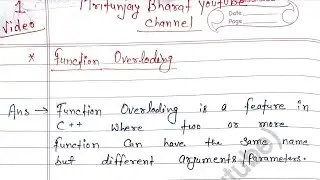 1 Video
Mritunjay Bharat youtube
channel
Date
Page
* Function Overloading
Ans → Function Overloading is a feature in
C++ where two or more
function can have the same name
but different arguments/parameters.